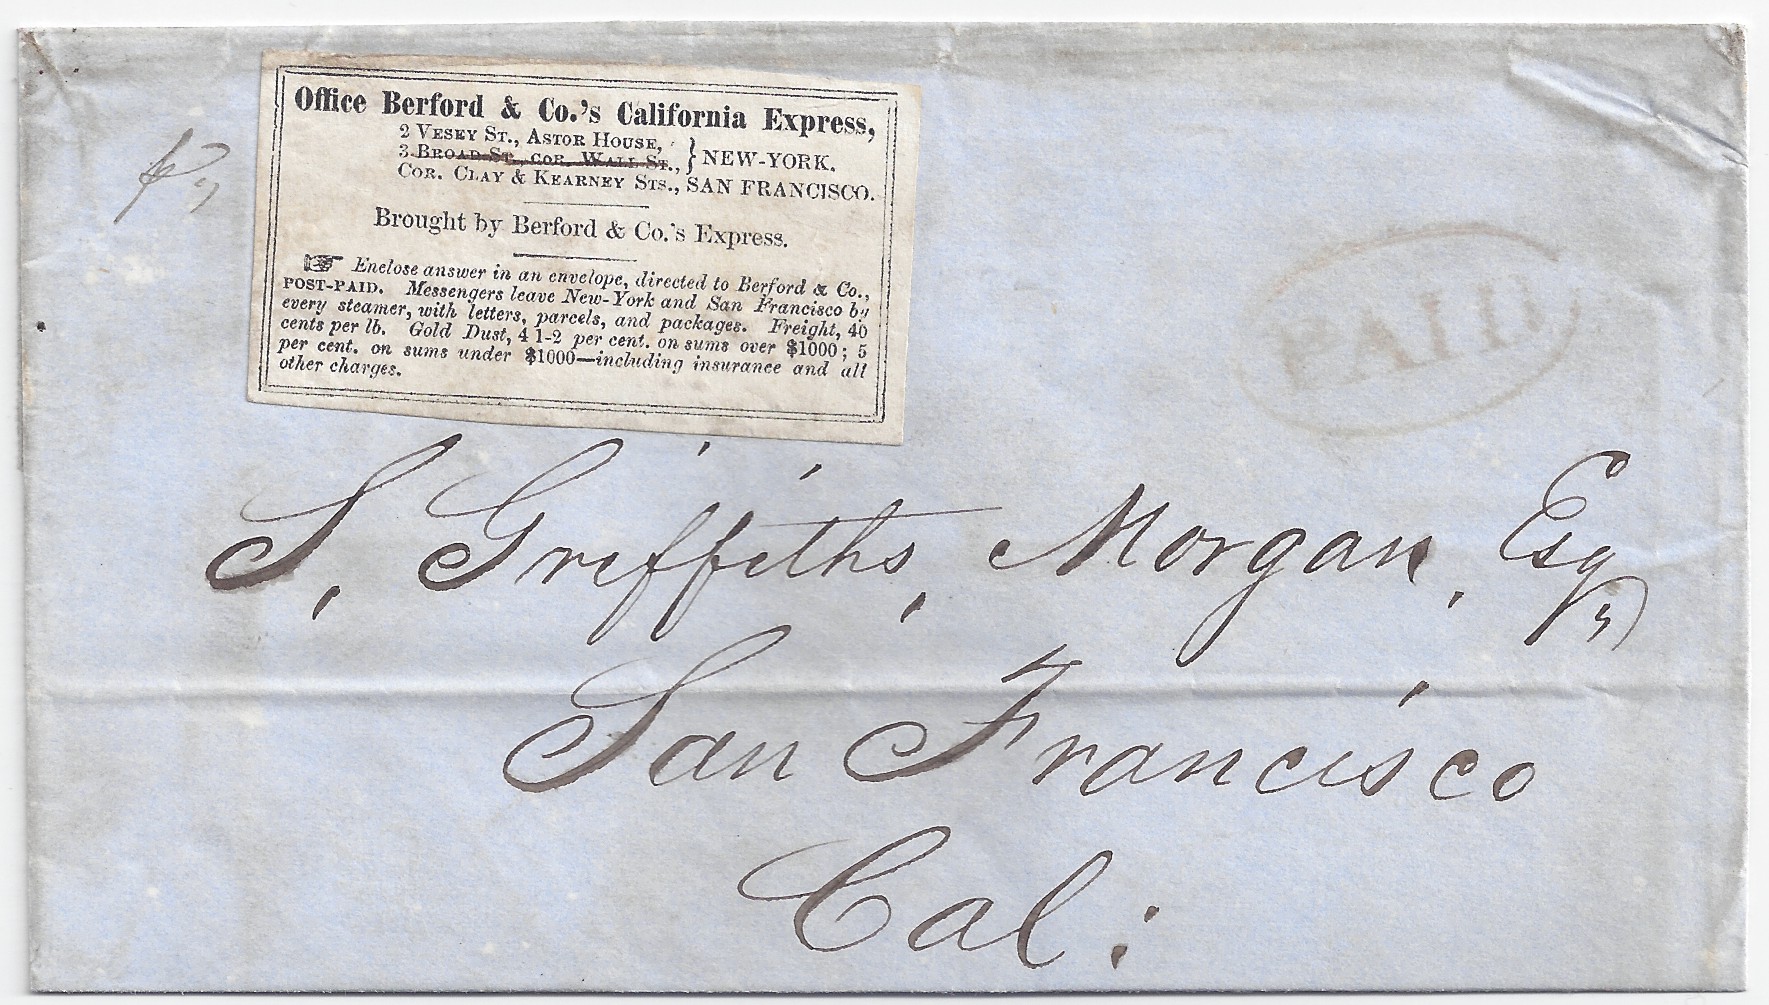 Office Berford & Co.'s California Express,
2 Vesey St., Astor House,
3 Broad St., cor. Wall St., } NEW-YORK.
Cor. Clay & Kearney Sts., SAN FRANCISCO.
Brought by Berford & Co.'s Express.
☞ Enclose answer in an envelope, directed to Berford & Co.,
POST-PAID. Messengers leave New-York and San Francisco by
every steamer, with letters, parcels, and packages. Freight, 40
cents per lb. Gold Dust, 4 1-2 per cent. on sums over $1000; 5
per cent. on sums under $1000—including insurance and all
other charges.
PAID
S. Griffiths, Morgan, Esq,
San Francisco
Cal: